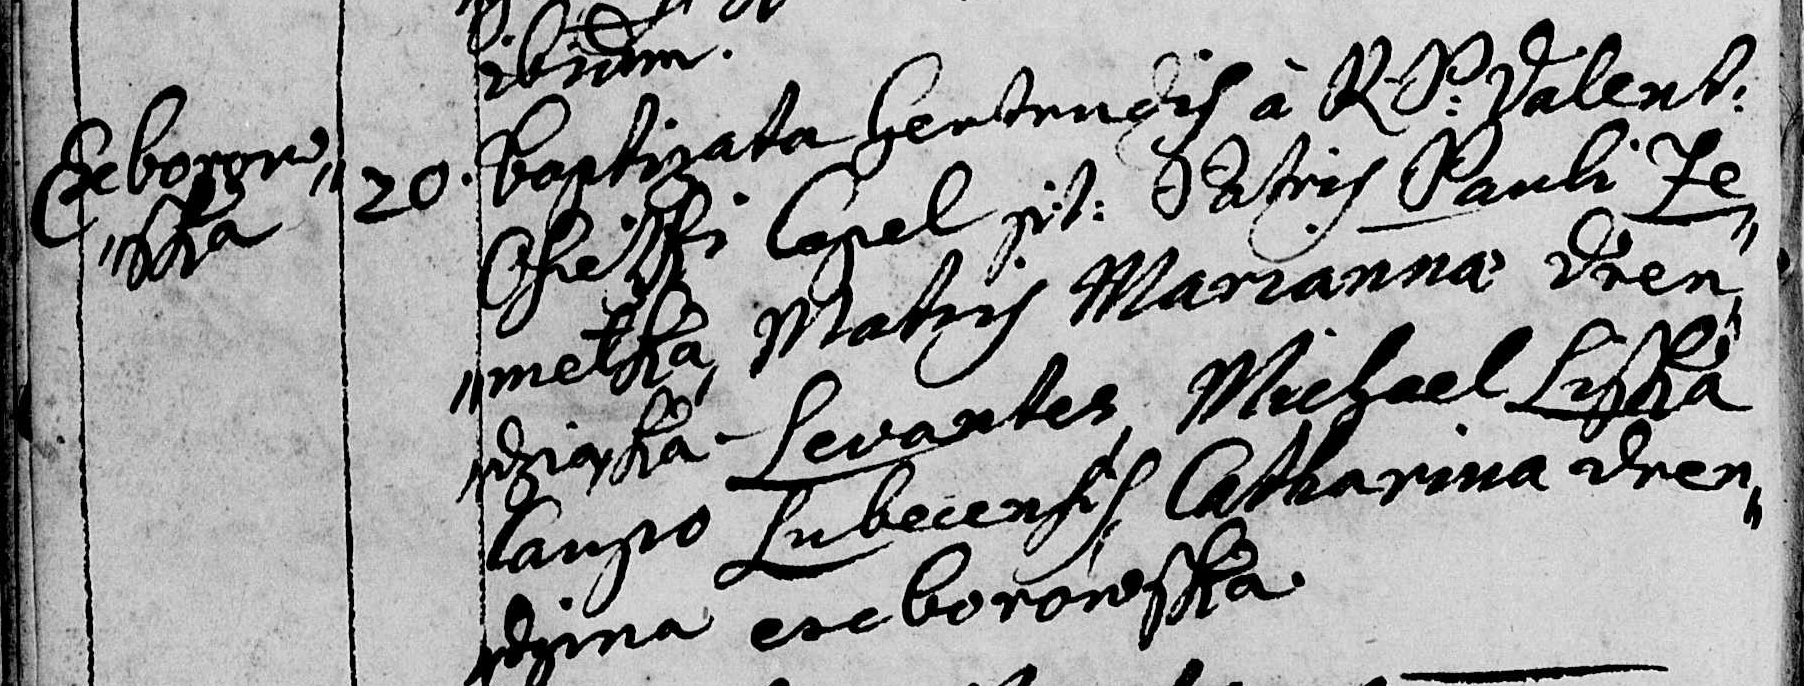 ibidem.
Ex borow„
„ska
20. baptizata Gertrudis à R. P: Valent:
Osietzki Capel pit: Patris Pauli Ze„
„metka, Matris Marianna Dren„
„dziaska - Levantes, Michael Liska
Caupo Lubecensis, Catharina Dren„
„dzina ex borowska.